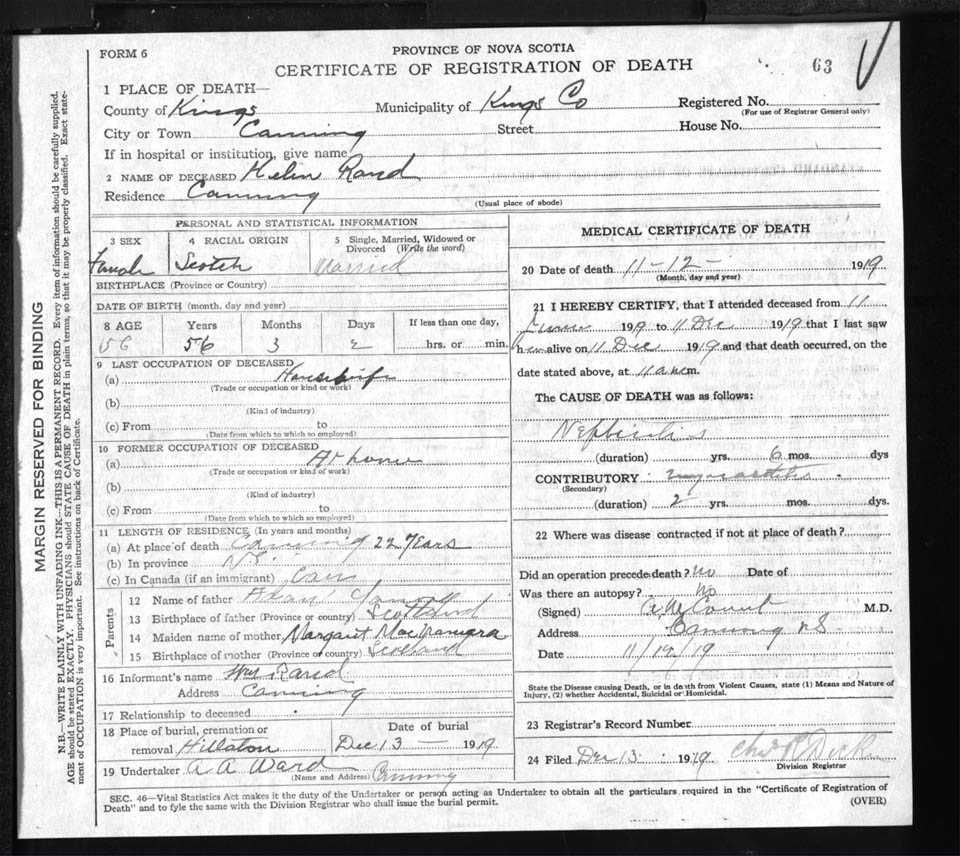 FORM 6
PROVINCE OF NOVA SCOTIA
CERTIFICATE OF REGISTRATION OF DEATH
63
1 PLACE OF DEATH—
County of Kings Municipality of Kings Co Registered No.
(For use of Registrar General only)
City or Town Canning Street House No.
If in hospital or institution, give name
2 NAME OF DECEASED Helen Rand
Residence Canning
(Usual place of abode)
PERSONAL AND STATISTICAL INFORMATION
3 SEX 4 RACIAL ORIGIN 5 Single, Married, Widowed or Divorced (Write the word)
Female Scotch Married
BIRTHPLACE (Province or Country)
DATE OF BIRTH (month, day and year)
8 AGE Years Months Days If less than one day,
56 56 3 2 hrs. or min.
9 LAST OCCUPATION OF DECEASED
(a) Housewife
(Trade or occupation or kind or work)
(b)
(Kind of industry)
(c) From to
(Date from which to which so employed)
10 FORMER OCCUPATION OF DECEASED
(a) At home
(Trade or occupation or kind of work)
(b)
(Kind of industry)
(c) From to
(Date from which to which so employed)
11 LENGTH OF RESIDENCE (In years and months)
(a) At place of death Canning 22 Years
(b) In province N.S.
(c) In Canada (if an immigrant) Can
Parents
12 Name of father
13 Birthplace of father (Province or country) Scotland
14 Maiden name of mother Margaret MacNamara
15 Birthplace of mother (Province or country) Scotland
16 Informant's name Rand
Address Canning
17 Relationship to deceased
18 Place of burial, cremation or removal Hillaton
Date of burial
Dec 13 — 1919
19 Undertaker A A Ward Canning
(Name and Address)
MEDICAL CERTIFICATE OF DEATH
20 Date of death 11-12- 1919
(Month, day and year)
21 I HEREBY CERTIFY, that I attended deceased from 11
June 1919 to 11 Dec 1919 that I last saw
her alive on 11 Dec 1919 and that death occurred, on the
date stated above, at 11 a.m.
The CAUSE OF DEATH was as follows:
Nephritis
(duration) yrs. 6 mos. dys
CONTRIBUTORY
(Secondary)
(duration) 2 yrs. mos. dys.
22 Where was disease contracted if not at place of death?
Did an operation precede death? No Date of
Was there an autopsy? No
(Signed) M.D.
Address Canning NS
Date 11/12/19
State the Disease causing Death, or in death from Violent Causes, state (1) Means and Nature of
Injury, (2) whether Accidental, Suicidal or Homicidal.
23 Registrar's Record Number
24 Filed Dec 13 1919
Division Registrar
SEC. 46—Vital Statistics Act makes it the duty of the Undertaker or person acting as Undertaker to obtain all the particulars required in the "Certificate of Registration of
Death" and to fyle the same with the Division Registrar who shall issue the burial permit.
(OVER)
MARGIN RESERVED FOR BINDING
N.B.—WRITE PLAINLY WITH UNFADING INK—THIS IS A PERMANENT RECORD. Every item of information should be carefully supplied.
AGE should be stated EXACTLY. PHYSICIANS should STATE CAUSE OF DEATH in plain terms, so that it may be properly classified. Exact statement of OCCUPATION is very important. See instructions on back of Certificate.